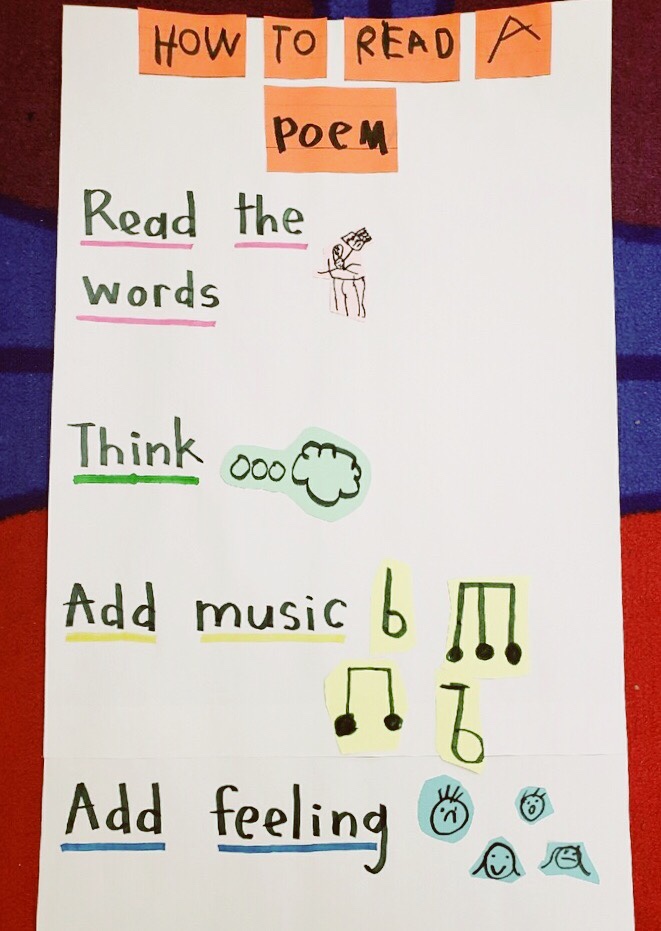 HOW TO READ A
POEM
Read the
words
Think
Add music
Add feeling